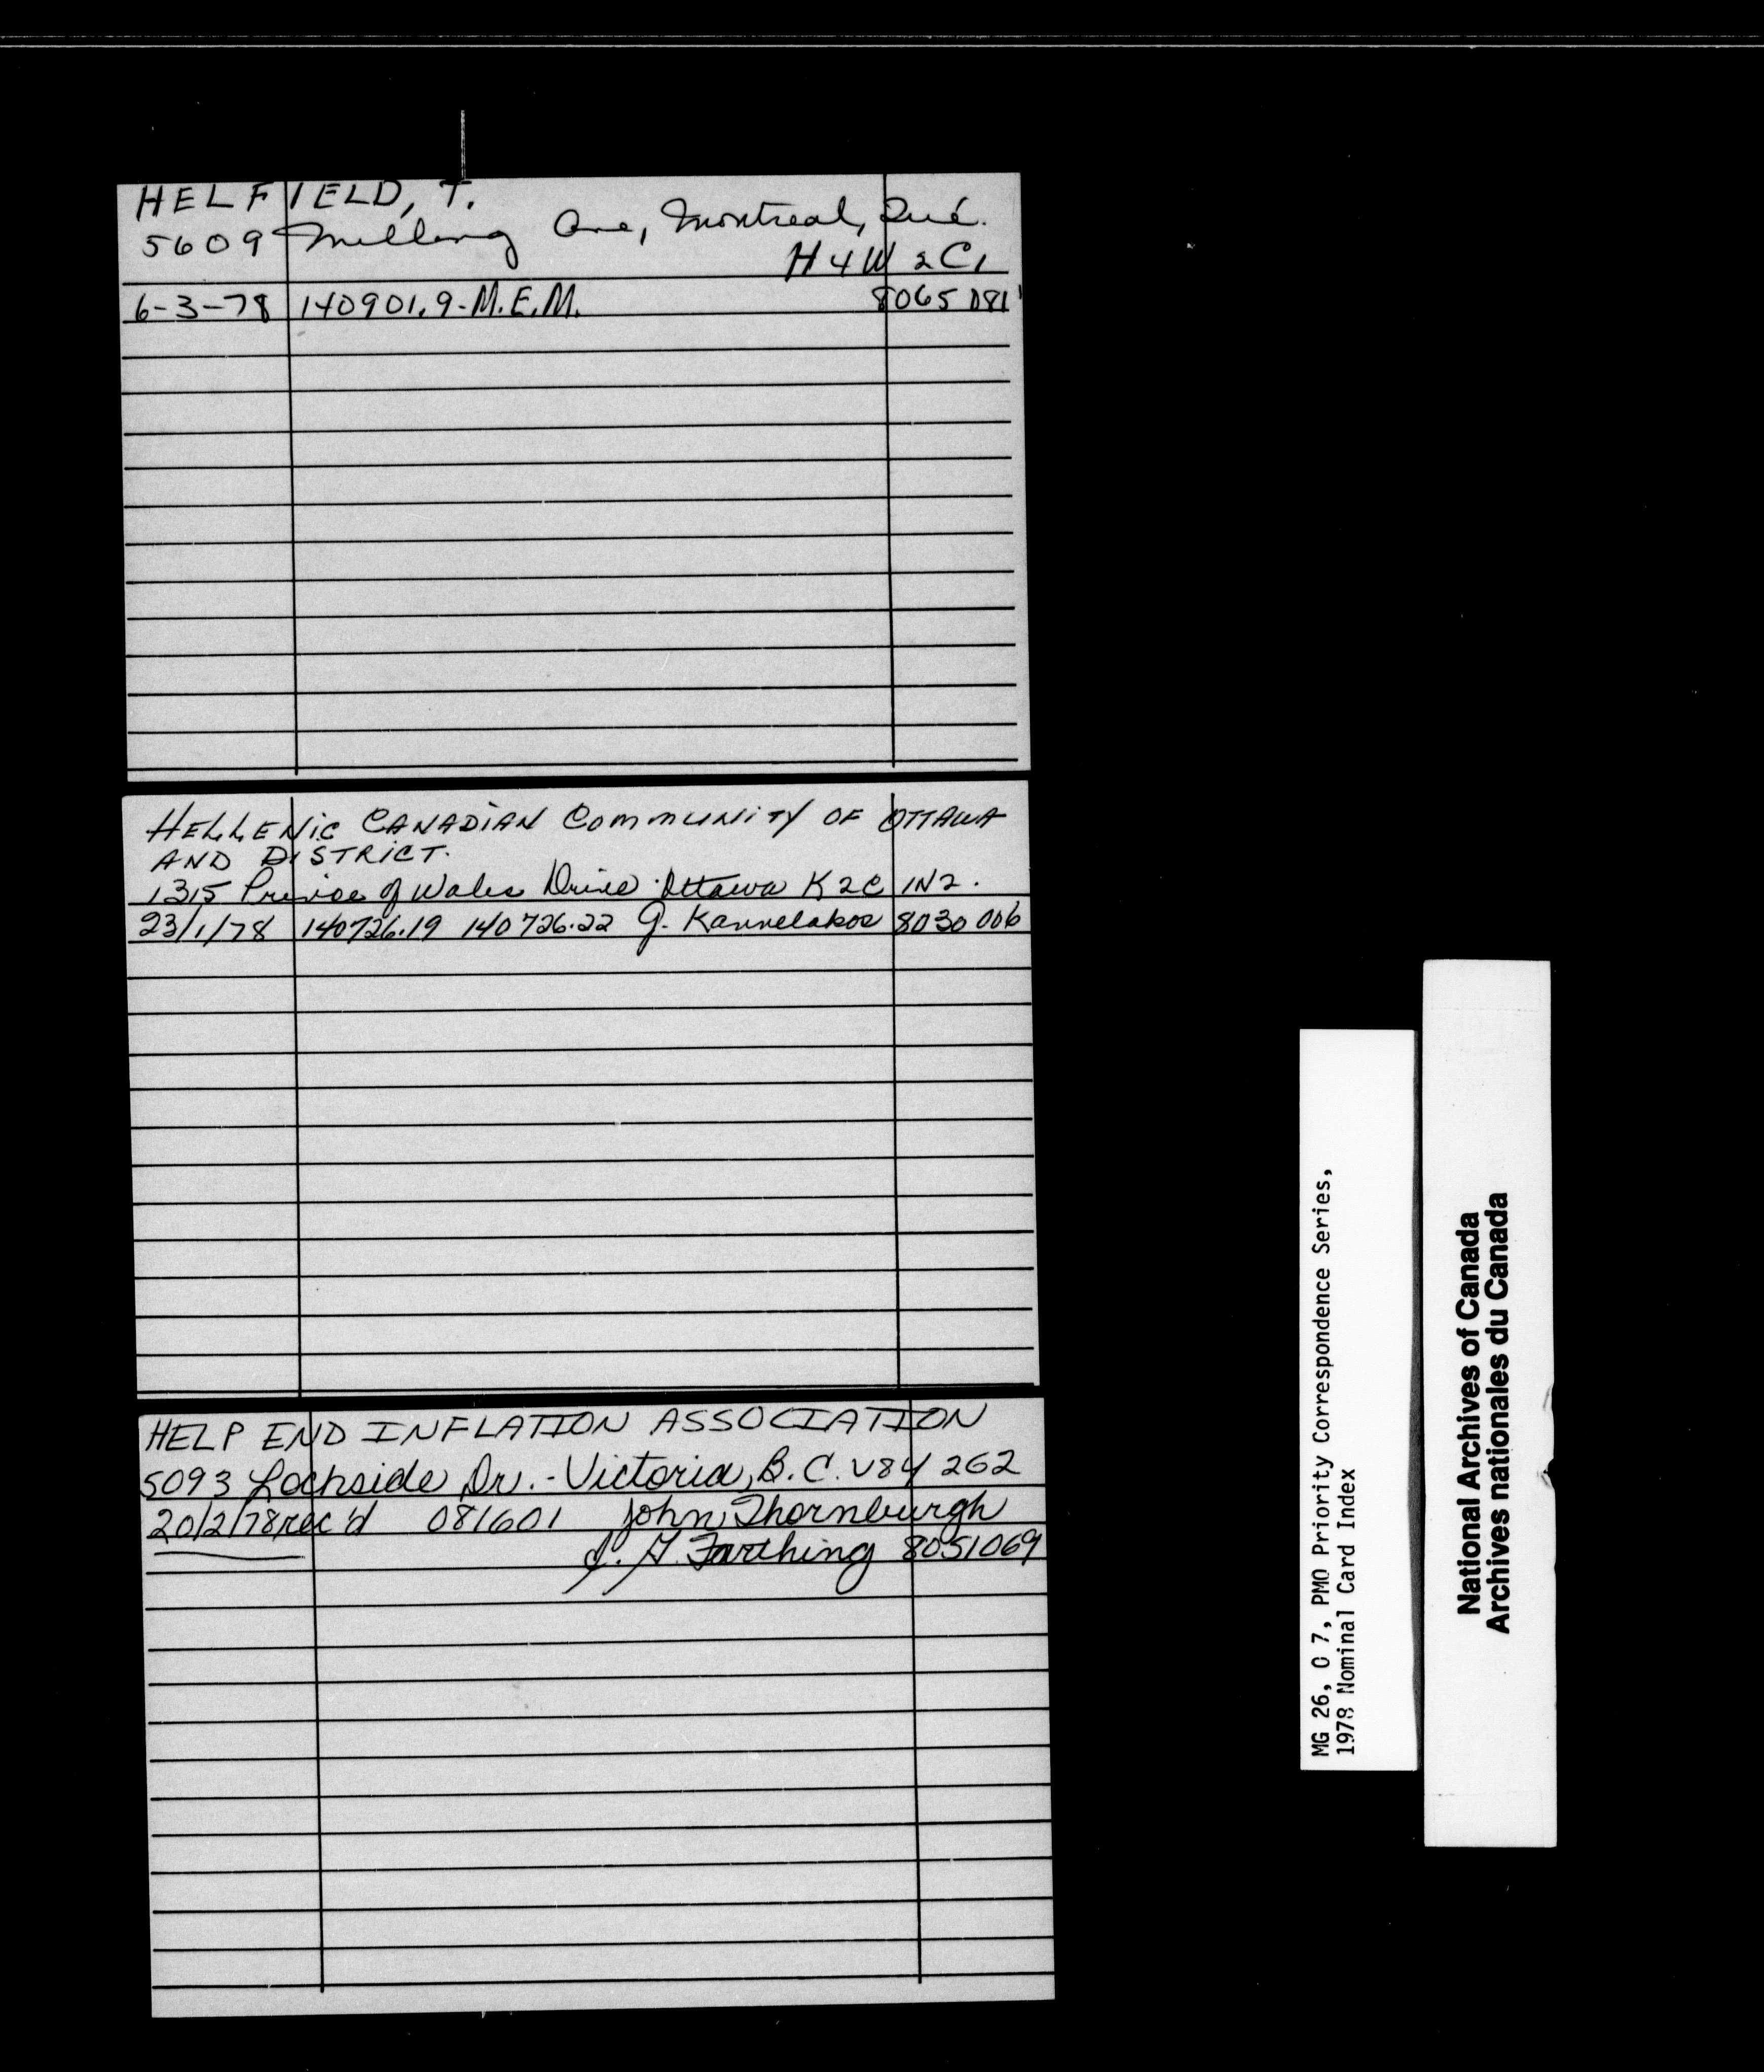 HELFIELD, T.
5609 Melling Ave, Montreal, Qué.
H4W 2C1
6-3-78 140901.9-M.E.M. 8065 081
HELLENIC CANADIAN COMMUNITY OF OTTAWA
AND DISTRICT.
1315 Prince of Wales Drive Ottawa K2C 1N2.
23/1/78 140726.19 140726.22 G. Kannelakos 8030 006
HELP END INFLATION ASSOCIATION
5093 Lochside Dr. - Victoria, B.C. V8Y 2G2
20/2/78 rec'd 081601 John Thornburgh
Farthing 8051069
MG 26, O 7, PMO Priority Correspondence Series,
1978 Nominal Card Index
National Archives of Canada
Archives nationales du Canada